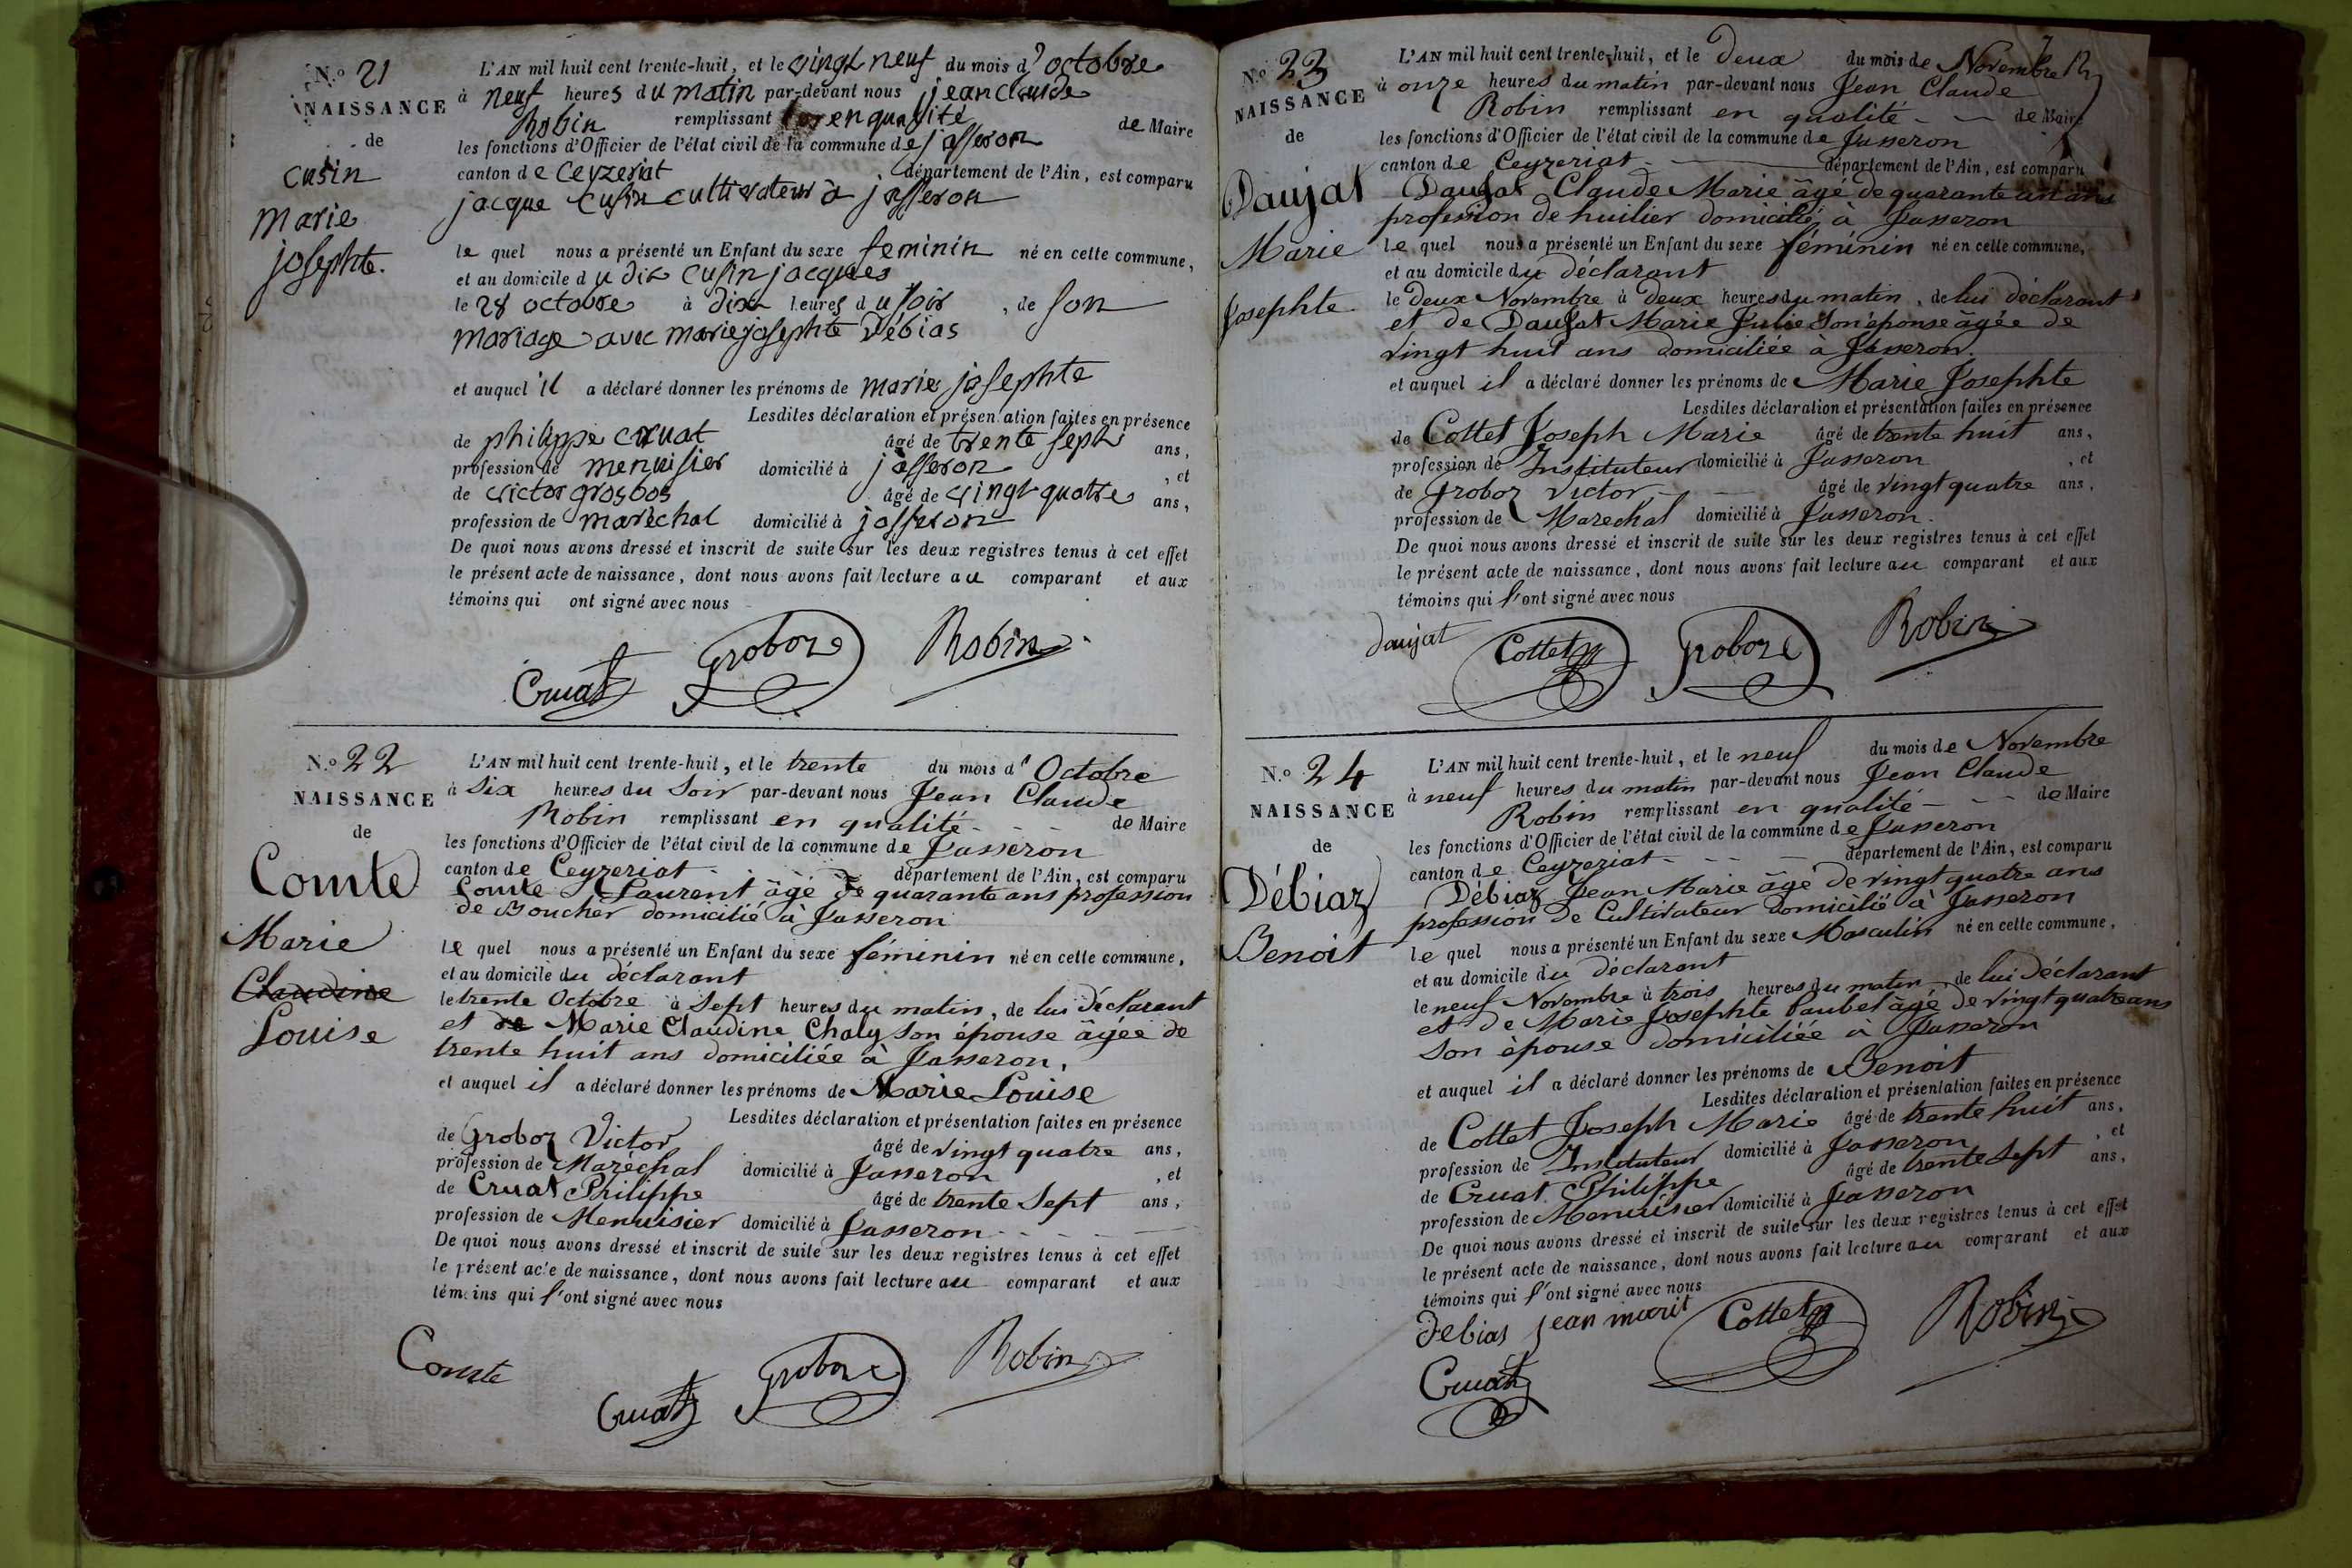 N.o 21
NAISSANCE
de
cusin
marie
josephte.
L'AN mil huit cent trente-huit, et le vingt neuf du mois d'octobre
à neuf heures du matin par-devant nous jean claude
Robin remplissant en qualité de Maire
les fonctions d'Officier de l'état civil de la commune de jasseron
canton de Ceyzeriat département de l'Ain, est comparu
jacque Cusin cultivateur à jasseron
le quel nous a présenté un Enfant du sexe feminin né en cette commune,
et au domicile du dit Cusin jacques
le 28 octobre à dix heures du soir, de son
mariage avec marie josephte Débias
et auquel il a déclaré donner les prénoms de marie josephte
Lesdites déclaration et présentation faites en présence
de philippe cruat âgé de trente sept ans,
profession de menuisier domicilié à jasseron, et
de victor grosbos âgé de vingt quatre ans,
profession de maréchal domicilié à jasseron
De quoi nous avons dressé et inscrit de suite sur les deux registres tenus à cet effet
le présent acte de naissance, dont nous avons fait lecture au comparant et aux
témoins qui ont signé avec nous
Cruat Groboz Robin
N.o 22
NAISSANCE
de
Comte
Marie
Claudine
Louise
L'AN mil huit cent trente-huit, et le trente du mois d'Octobre
à six heures du Soir par-devant nous Jean Claude
Robin remplissant en qualité de Maire
les fonctions d'Officier de l'état civil de la commune de Jasseron
canton de Ceyzeriat département de l'Ain, est comparu
Comte Laurent âgé de quarante ans profession
de Boucher domicilié à Jasseron
le quel nous a présenté un Enfant du sexe féminin né en cette commune,
et au domicile du déclarant
le trente Octobre à Sept heures du matin, de lui Déclarant
et de Marie Claudine Chaly son épouse âgée de
trente huit ans domiciliée à Jasseron,
et auquel il a déclaré donner les prénoms de Marie Louise
Lesdites déclaration et présentation faites en présence
de Groboz Victor âgé de vingt quatre ans,
profession de Maréchal domicilié à Jasseron, et
de Cruat Philippe âgé de trente Sept ans,
profession de Menuisier domicilié à Jasseron
De quoi nous avons dressé et inscrit de suite sur les deux registres tenus à cet effet
le présent acte de naissance, dont nous avons fait lecture au comparant et aux
témoins qui l'ont signé avec nous
Comte Cruat Groboz Robin
N.o 23
NAISSANCE
de
Daujat
Marie
Josephte
L'AN mil huit cent trente-huit, et le Deux du mois de Novembre
à onze heures du matin par-devant nous Jean Claude
Robin remplissant en qualité de Maire
les fonctions d'Officier de l'état civil de la commune de Jasseron
canton de Ceyzeriat département de l'Ain, est comparu
Daujat Claude Marie âgé de quarante un ans
profession de huilier domicilié à Jasseron
le quel nous a présenté un Enfant du sexe féminin né en cette commune,
et au domicile du déclarant
le deux Novembre à deux heures du matin, de lui déclarant
et de Daujat Marie Julie Son épouse âgée de
vingt huit ans domiciliée à Jasseron.
et auquel il a déclaré donner les prénoms de Marie Josephte
Lesdites déclaration et présentation faites en présence
de Cottet Joseph Marie âgé de trente huit ans,
profession de Instituteur domicilié à Jasseron, et
de Groboz Victor âgé de vingt quatre ans,
profession de Marechal domicilié à Jasseron.
De quoi nous avons dressé et inscrit de suite sur les deux registres tenus à cet effet
le présent acte de naissance, dont nous avons fait lecture au comparant et aux
témoins qui l'ont signé avec nous
Daujat Cottet Groboz Robin
N.o 24
NAISSANCE
de
Débiaz
Benoit
L'AN mil huit cent trente-huit, et le neuf du mois de Novembre
à neuf heures du matin par-devant nous Jean Claude
Robin remplissant en qualité de Maire
les fonctions d'Officier de l'état civil de la commune de Jasseron
canton de Ceyzeriat département de l'Ain, est comparu
Débiaz Jean Marie âgé de vingt quatre ans
profession de Cultivateur domicilié à Jasseron
le quel nous a présenté un Enfant du sexe Masculin né en cette commune,
et au domicile du déclarant
le neuf Novembre à trois heures du matin de lui Déclarant
et de Marie Josephte Paubel âgé de vingt quatre ans
Son épouse domiciliée à Jasseron
et auquel il a déclaré donner les prénoms de Benoit
Lesdites déclaration et présentation faites en présence
de Cottet Joseph Marie âgé de trente huit ans,
profession de Instituteur domicilié à Jasseron, et
de Cruat Philippe âgé de trente Sept ans,
profession de Menuisier domicilié à Jasseron
De quoi nous avons dressé et inscrit de suite sur les deux registres tenus à cet effet
le présent acte de naissance, dont nous avons fait lecture au comparant et aux
témoins qui l'ont signé avec nous
Debias jean marit Cottet Robin
Cruat